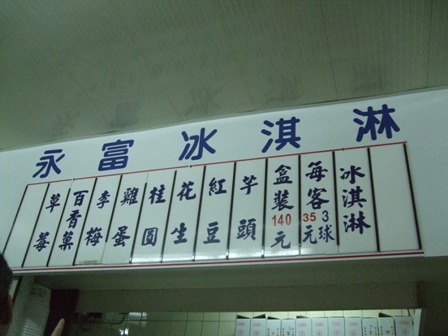 永富冰淇淋
冰淇淋
每客3球35元
盒裝140元
芋頭
紅豆
花生
桂圓
雞蛋
李梅
百香菓
草莓